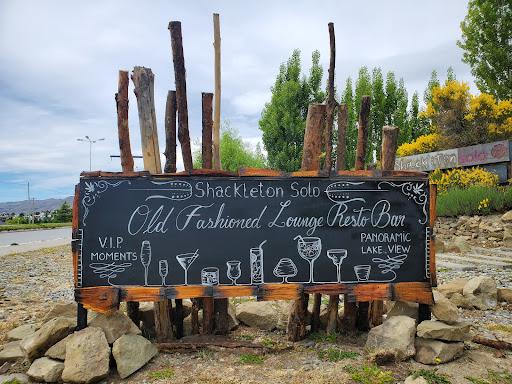 Shackleton Solo
Old Fashioned Lounge Resto Bar
V.I.P.
MOMENTS
PANORAMIC
LAKE VIEW
Shackleton Solo